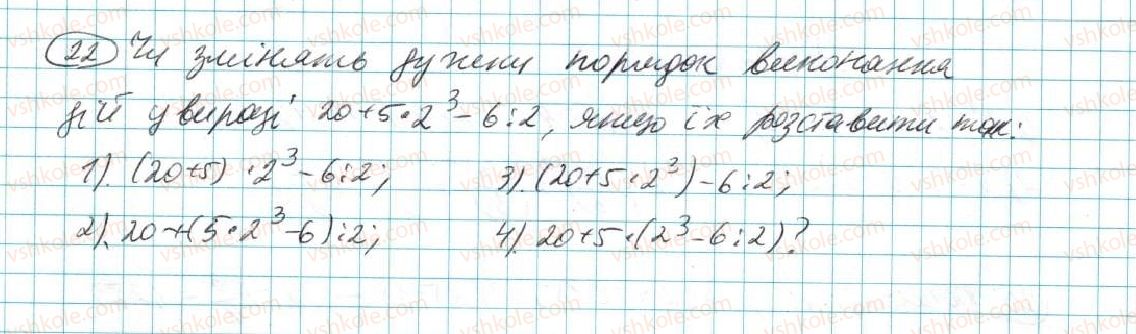 22 Чи змінять дужки порядок виконання
дій у виразі 20+5·2³-6:2, якщо їх розставити так:
1). (20+5)·2³-6:2; 3). (20+5·2³)-6:2;
2). 20+(5·2³-6):2; 4). 20+5·(2³-6:2)?